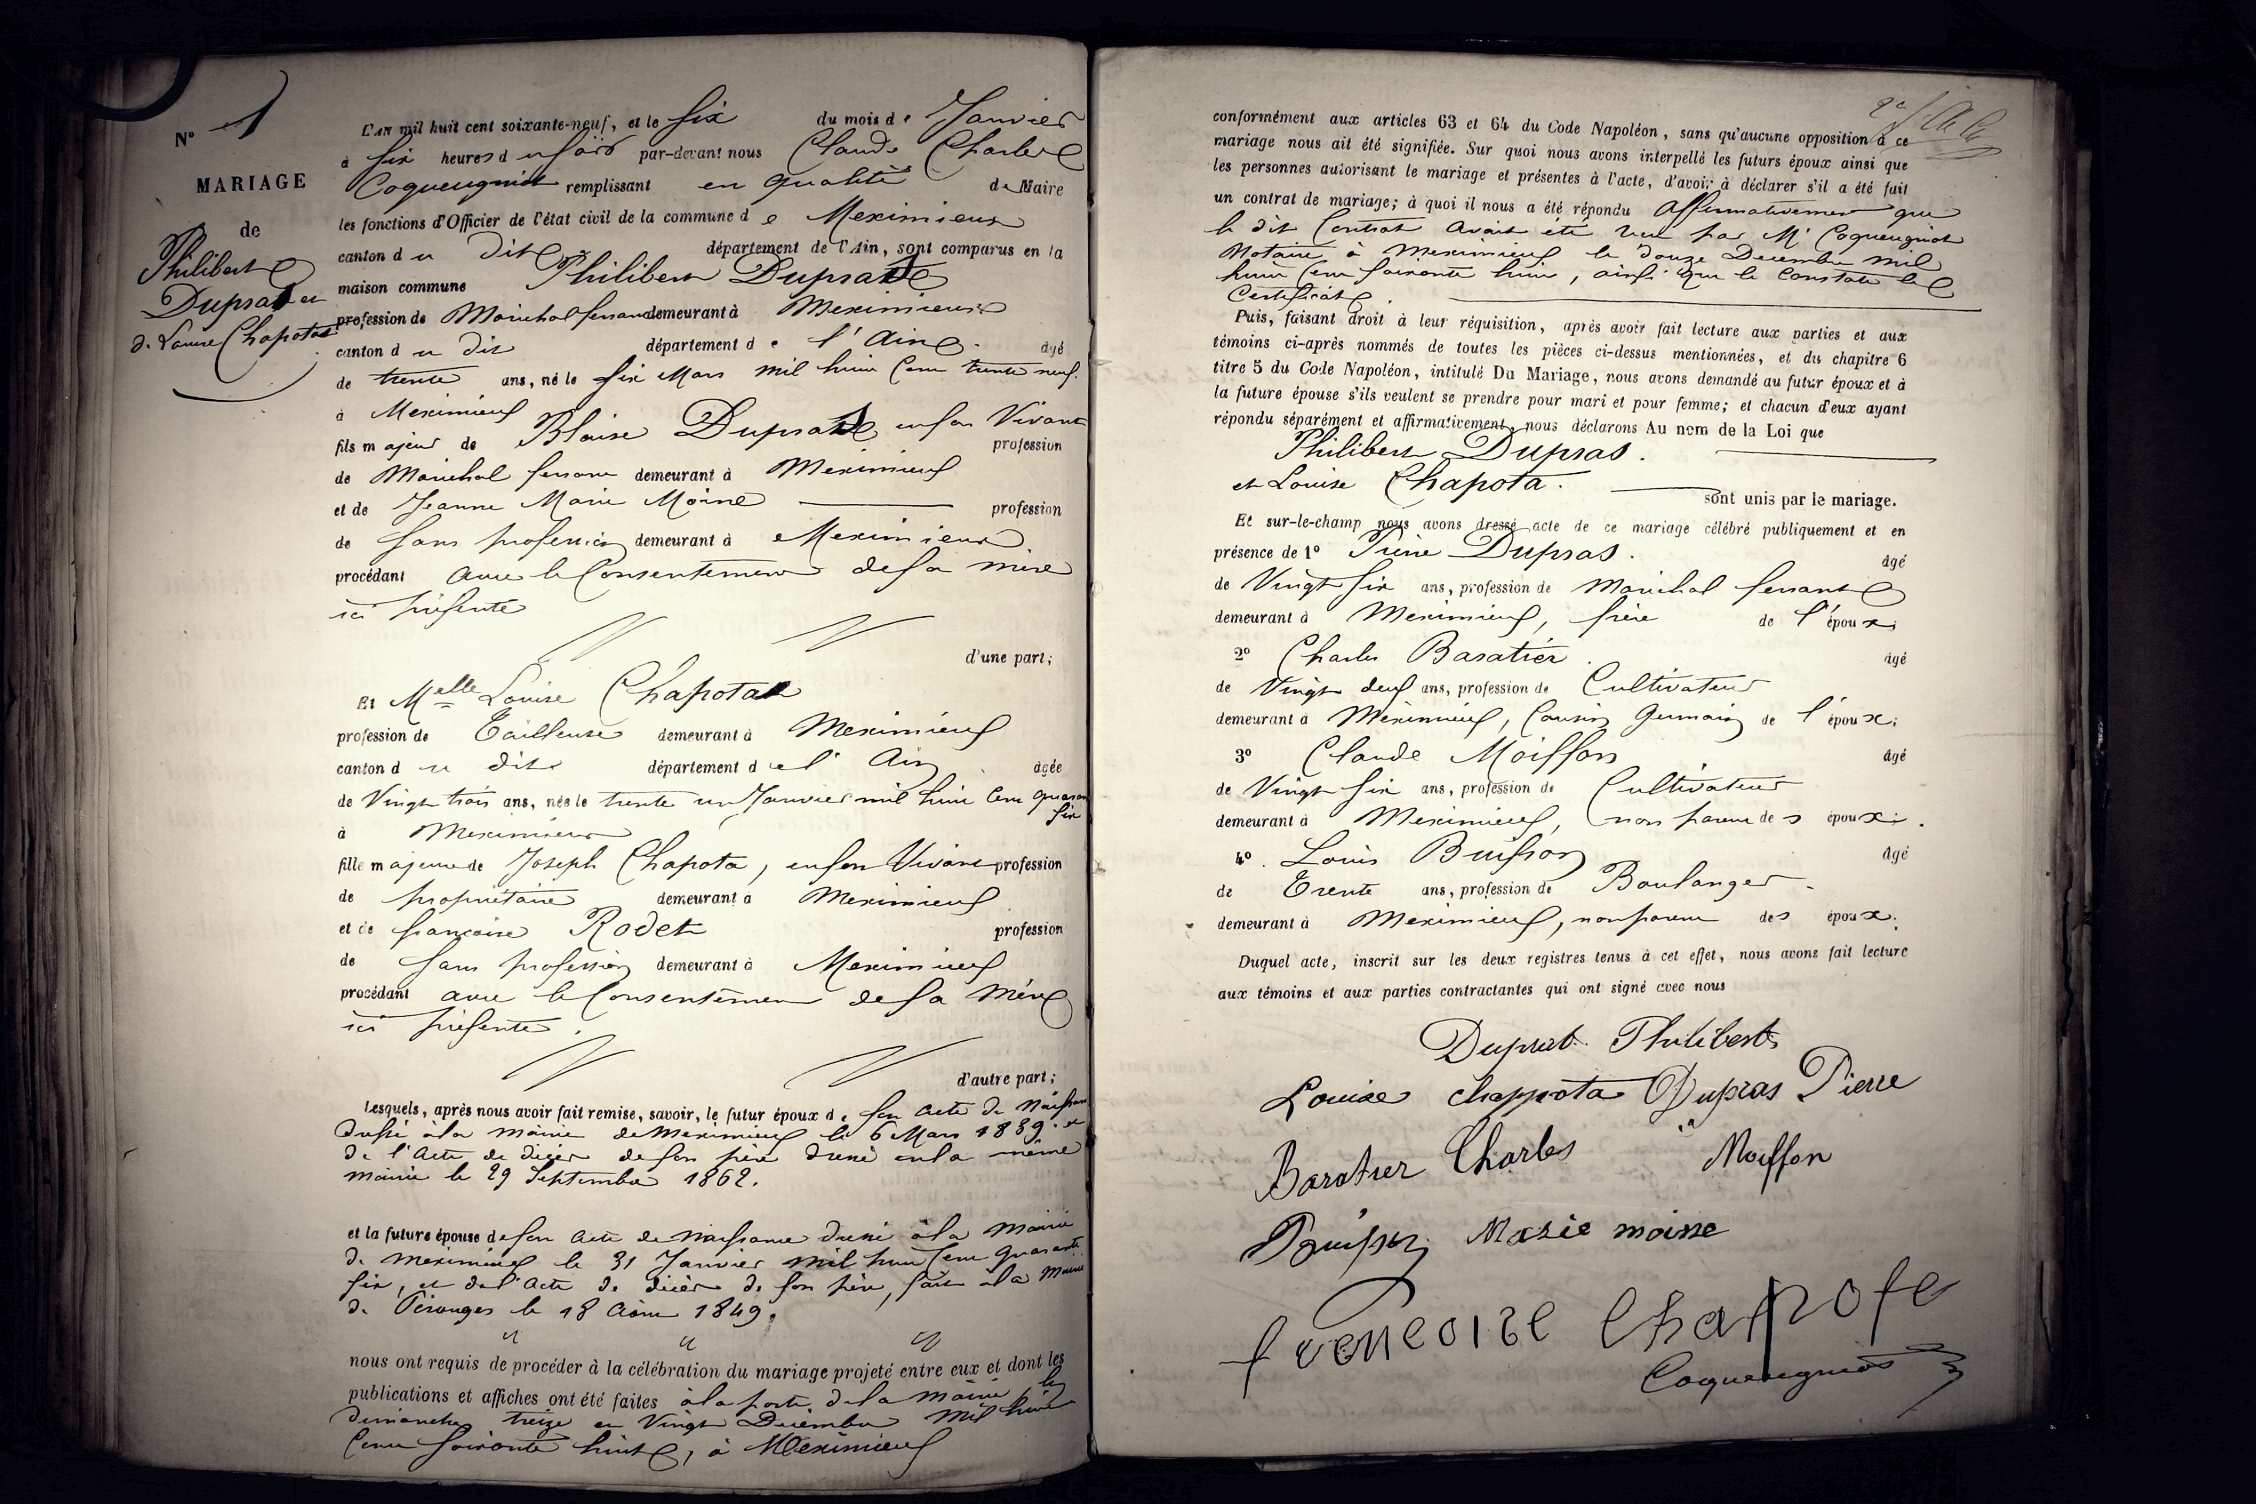 N° 1
MARIAGE
de
Philibert
Dupras et
de Louise Chapota
L'AN mil huit cent soixante-neuf, et le six du mois de Janvier
à six heures du soir par-devant nous Claude Charles
Coqueugniot remplissant en qualité de Maire
les fonctions d'Officier de l'état civil de la commune de Meximieux
canton du dit département de l'Ain, sont comparus en la
maison commune Philibert Dupras
profession de Maréchal ferrant demeurant à Meximieux
canton du dit département de l'Ain âgé
de trente ans, né le six Mars mil huit Cent trente neuf
à Meximieux
fils majeur de Blaise Dupras en son Vivant profession
de Maréchal ferrant demeurant à Meximieux
et de Jeanne Marie Moine profession
de sans profession demeurant à Meximieux
procédant avec le Consentement de sa mère
ici présente
d'une part;
Et Melle Louise Chapota
profession de Tailleuse demeurant à Meximieux
canton du dit département de l'Ain âgée
de Vingt trois ans, née le trente un Janvier mil huit Cent quarante
six
à Meximieux
fille majeure de Joseph Chapota, en son Vivant profession
de propriétaire demeurant à Meximieux
et de françoise Rodet profession
de sans profession demeurant à Meximieux
procédant avec le Consentement de sa Mère
ici présente.
d'autre part;
Lesquels, après nous avoir fait remise, savoir, le futur époux de son acte de Naissance
dressé à la mairie de Meximieux le 6 Mars 1839. et
de l'acte de décès de son père dressé en la même
mairie le 29 Septembre 1862.
et la future épouse de son acte de Naissance dressé à la Mairie
de Meximieux le 31 Janvier mil huit Cent quarante
six, et de l'acte de décès de son père, fait à la Mairie
de Pérouges le 18 Août 1849.
nous ont requis de procéder à la célébration du mariage projeté entre eux et dont les
publications et affiches ont été faites à la porte de la mairie les
dimanches treize et Vingt Décembre Mil huit
Cent soixante huit, à Meximieux
conformément aux articles 63 et 64 du Code Napoléon, sans qu'aucune opposition à ce
mariage nous ait été signifiée. Sur quoi nous avons interpellé les futurs époux ainsi que
les personnes autorisant le mariage et présentes à l'acte, d'avoir à déclarer s'il a été fait
un contrat de mariage; à quoi il nous a été répondu affirmativement que
le dit Contrat avait été reçu par Me Coqueugniot
Notaire à Meximieux le douze Décembre mil
huit Cent soixante huit, ainsi que le constate le
Certificat.
Puis, faisant droit à leur réquisition, après avoir fait lecture aux parties et aux
témoins ci-après nommés de toutes les pièces ci-dessus mentionnées, et du chapitre 6
titre 5 du Code Napoléon, intitulé Du Mariage, nous avons demandé au futur époux et à
la future épouse s'ils veulent se prendre pour mari et pour femme; et chacun d'eux ayant
répondu séparément et affirmativement, nous déclarons Au nom de la Loi que
Philibert Dupras.
et Louise Chapota. sont unis par le mariage.
Et sur-le-champ nous avons dressé acte de ce mariage célébré publiquement et en
présence de 1° Pierre Dupras. âgé
de Vingt six ans, profession de Maréchal ferrant
demeurant à Meximieux, frère de l'époux;
2° Charles Baratier. âgé
de Vingt deux ans, profession de Cultivateur
demeurant à Meximieux, Cousin Germain de l'époux;
3° Claude Moiffon âgé
de Vingt six ans, profession de Cultivateur
demeurant à Meximieux, non parent des époux;
4° Louis Buisson âgé
de Trente ans, profession de Boulanger
demeurant à Meximieux, non parent des époux.
Duquel acte, inscrit sur les deux registres tenus à cet effet, nous avons fait lecture
aux témoins et aux parties contractantes qui ont signé avec nous
Duprat Philibert
Louise chappota Dupras Pierre
Baratier Charles Moiffon
Buisson Marie moine
françoise Chapote
Coqueugniot